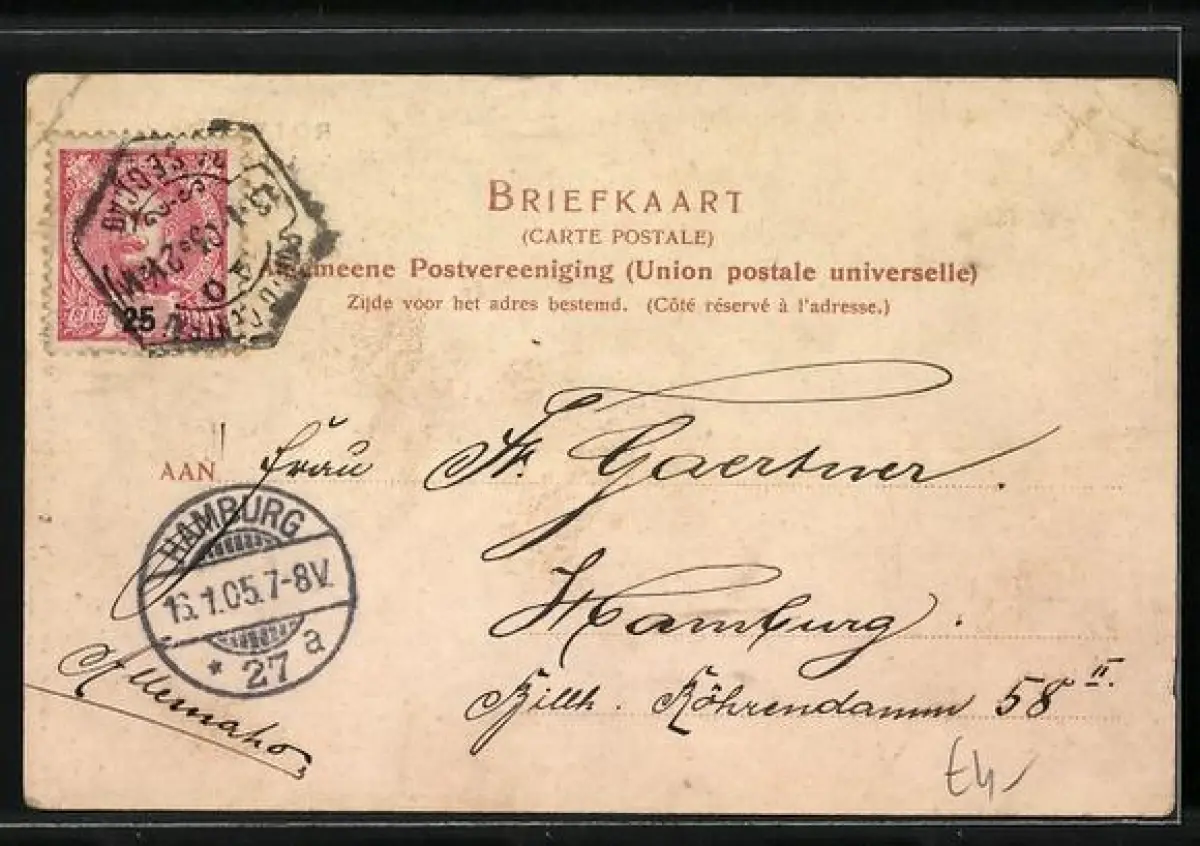 BRIEFKAART
(CARTE POSTALE)
Postvereeniging (Union postale universelle)
Zijde voor het adres bestemd. (Côté réservé à l'adresse.)
25
AAN Frau Fr. Gaertner.
HAMBURG
16.1.05.7-8V.
* 27 a
Hamburg.
Billh. Röhrendamm 58 II.
Allemanho